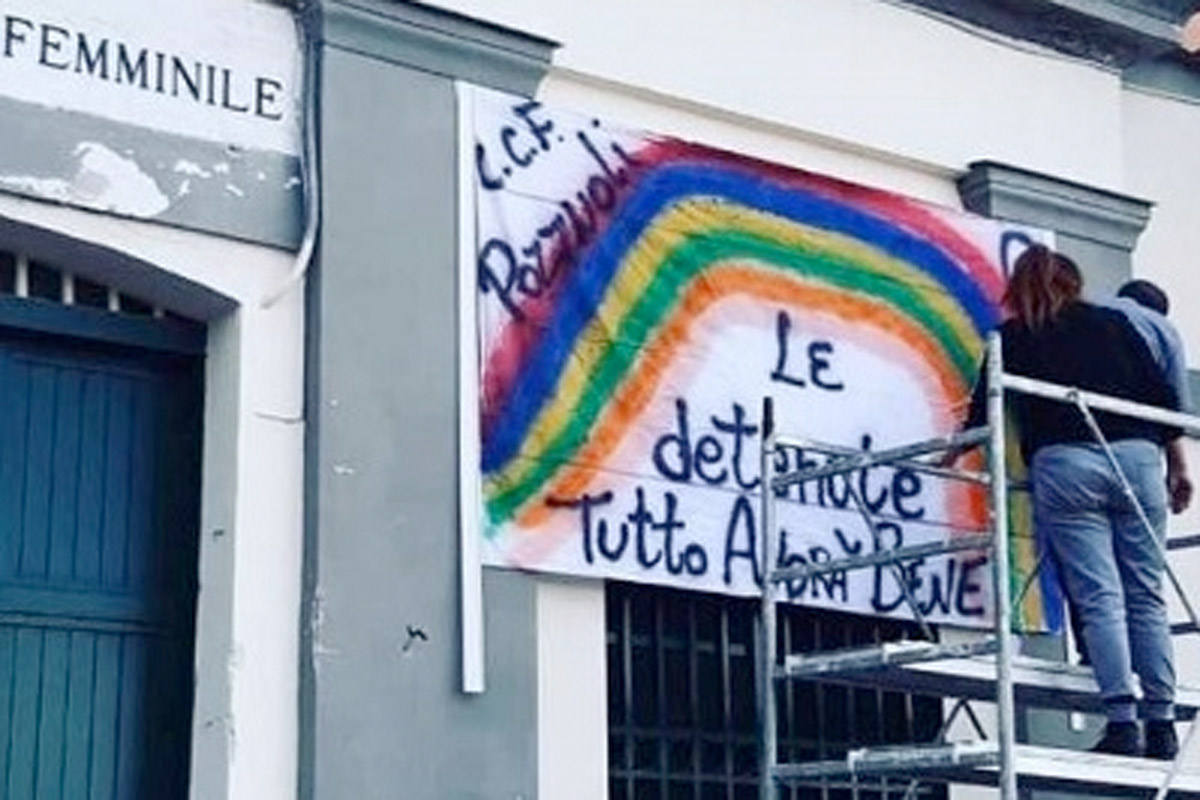 FEMMINILE
C.C.F.
Pozzuoli
LE
detenute
Tutto ANDRÀ BENE